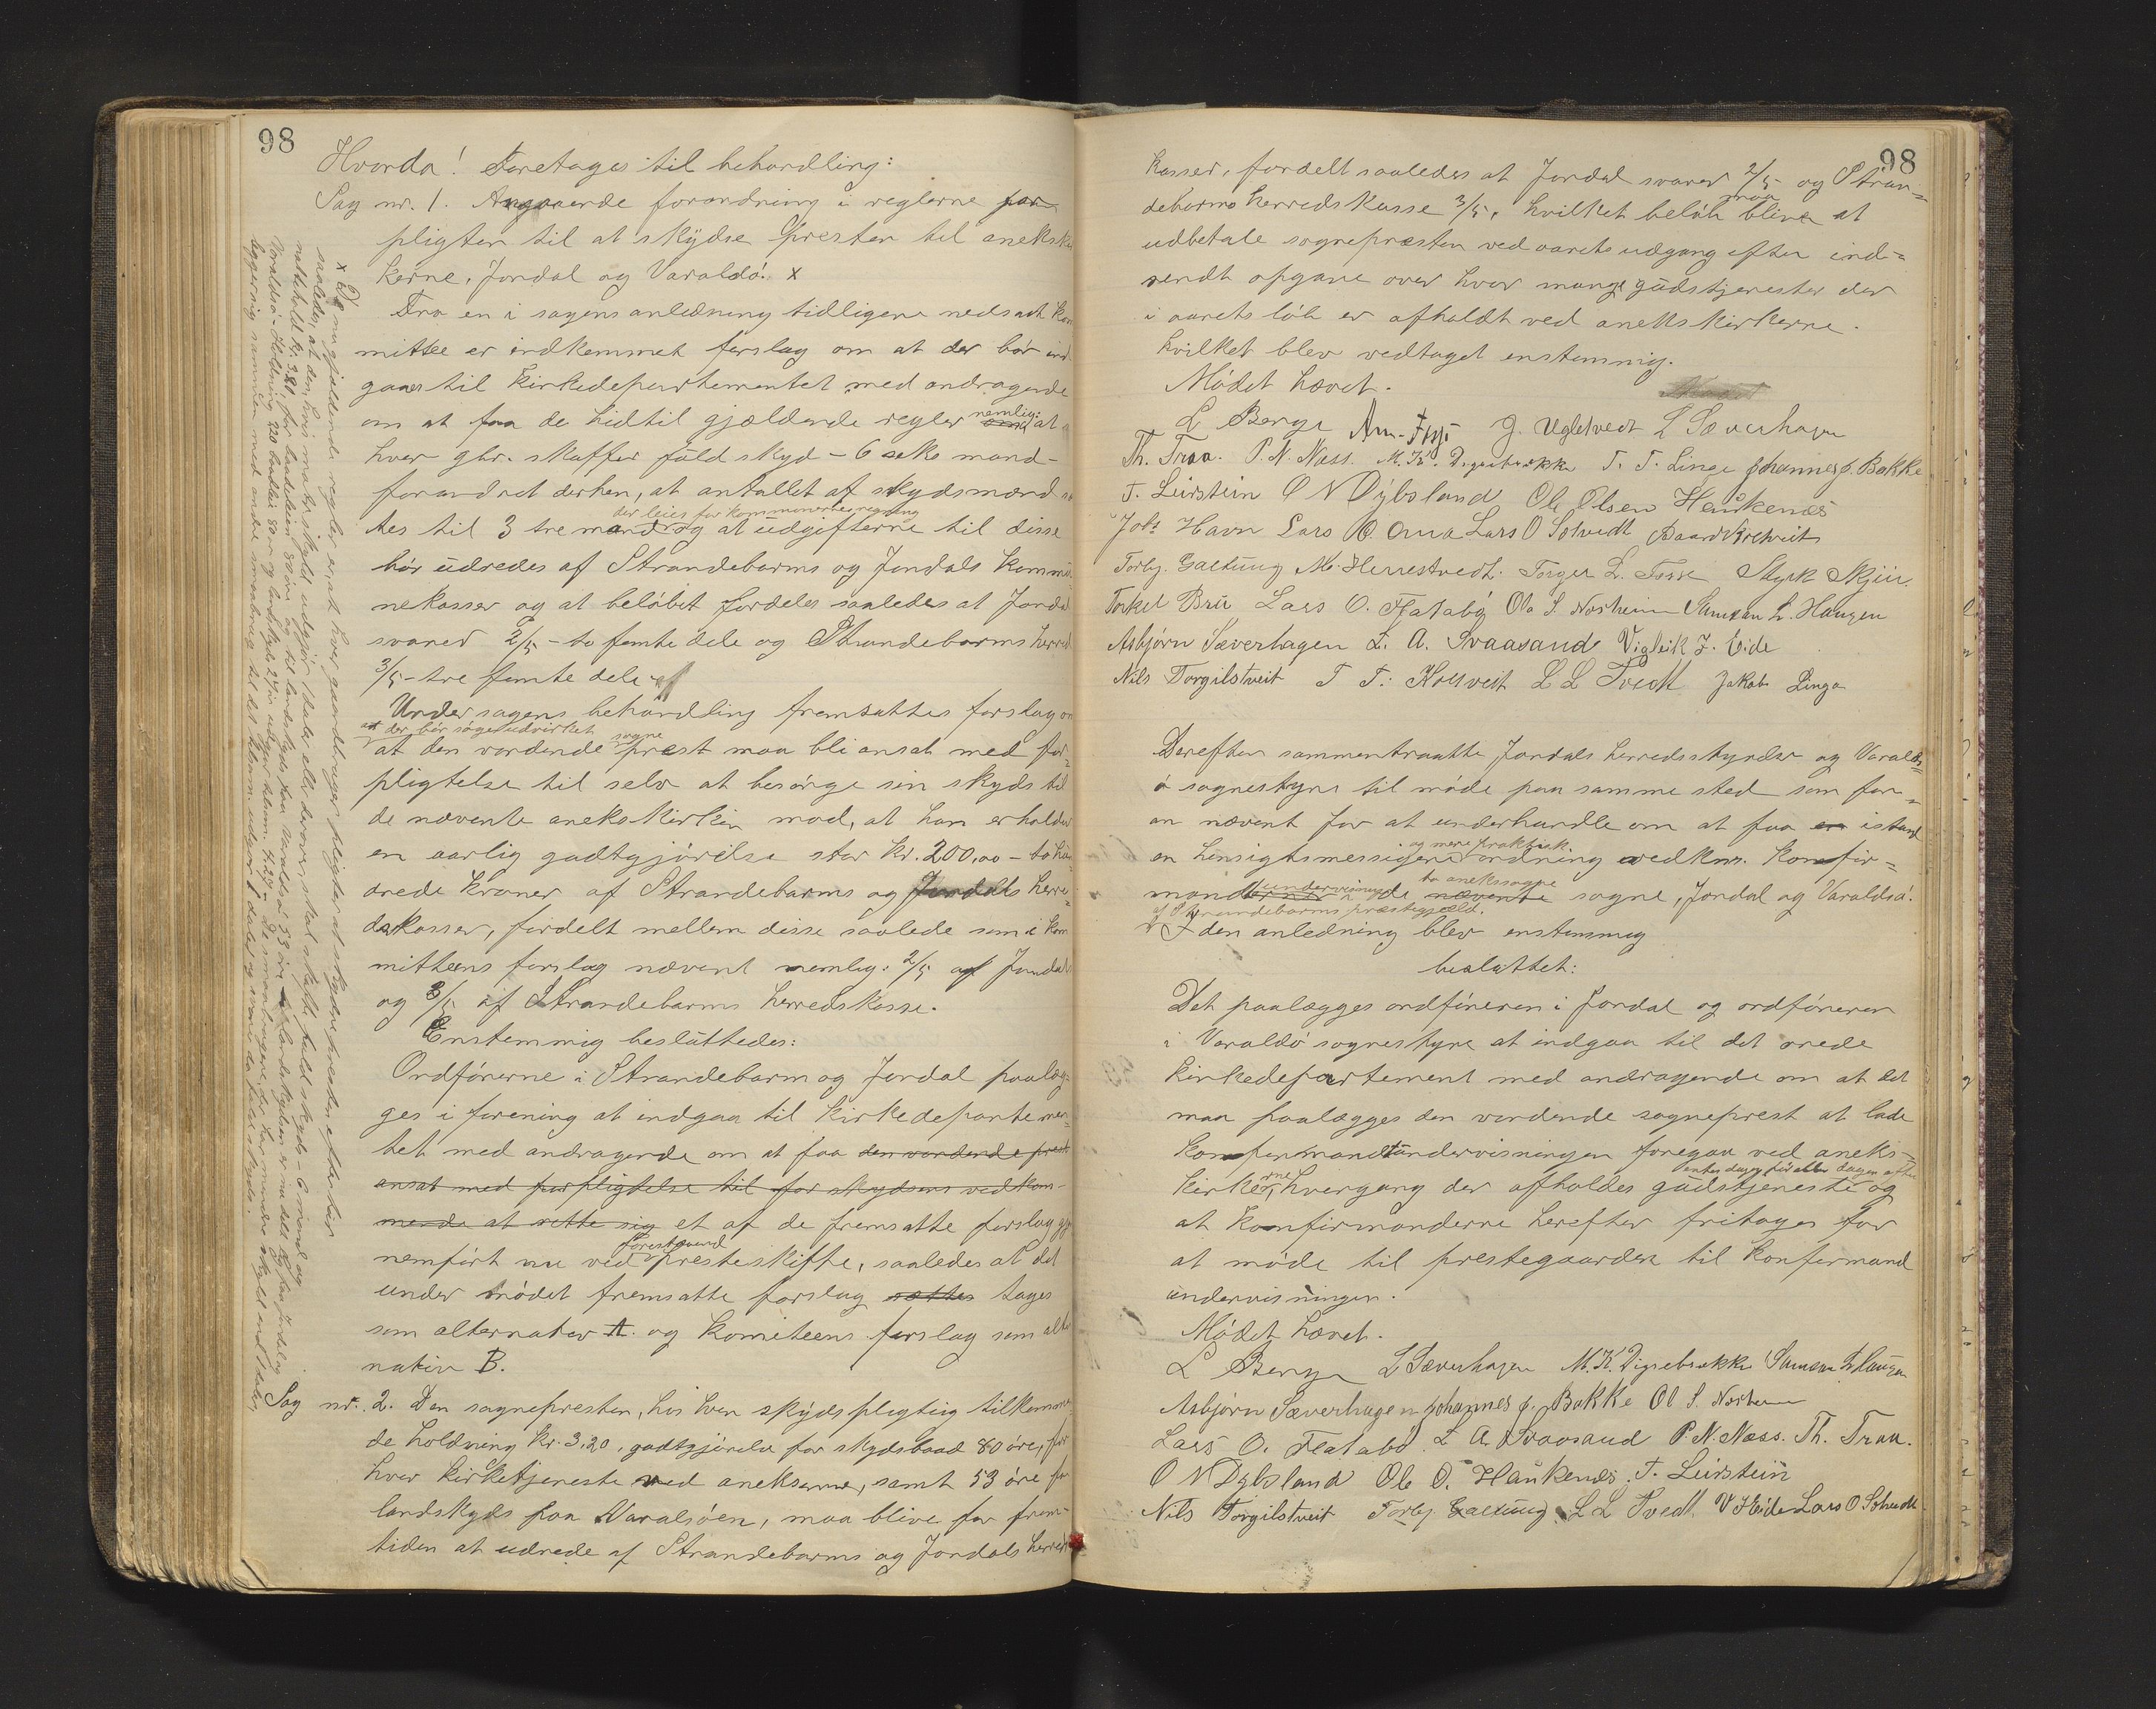 98
Hvorda! Foretages til behandling:
Sag nr. 1. Angaaende forandring i reglerne for
pligten til at skydse presten til anekskir
kerne, Jondal og Varaldsö. x
Fra en i sagens anledning tidligere nedsat kom
mittee er indkommet forslag om at der bör ind
gaaes til Kirkedepartementet med andragende
om at faa de hidtil gjældende regler nemlig: at
hver gbr. skaffer fuld skyds - 6 seks mand -
forandret derhen, at antallet af skydsmænd
tes til 3 tre mand og at udgifterne til disse
der leies for kommunernes regning
bör udredes af Strandebarms og Jondals kommu
nekasser og at belöbet fordeles saaledes at Jondal
svarer 2/5 - to femte dele og Strandebarms herred
3/5 - tre femte dele
Under sagens behandling fremsattes forslag om
at der bör söges udvirket
at den vordende sogneprest maa bli ansat med for-
pligtelse til selv at besörge sin skyds til
de nævnte anekskirker mod, at han erholder
en aarlig godtgjörelse stor kr. 200,00 - to hun
drede kroner af Strandebarms og Jondals herre-
dskasser, fordelt mellem disse saalede som i kom
mitteens forslag nævnt nemlig: 2/5 af Jondals
og 3/5 af Strandebarms herredskasse.
Enstemmig besluttedes:
Ordförerne i Strandebarm og Jondal paalæg-
ges i forening at indgaa til kirkedepartemen-
tet med andragende om at faa den vordende prest
ansat med forpligtelse til for skydsens vedkom-
mende at rette sig et af de fremsatte forslag gjen
nemfört nu ved forestaaende presteskifte, saaledes at det
under mödet fremsatte forslag sættes tages
som alternativ A. og komiteens forslag som alter
nativ B.
Sag nr. 2. Den sognepresten, hos hver skydspligtig tilkommen
de holdning kr. 3,20, godtgjörelse for skydsbaad 80 öre, for
hver kirketjeneste ved anekserne, samt 53 öre for
landskyds paa Varalsöen, maa blive for frem-
tiden at udrede af Strandebarms og Jondals herreds
x De nu gjældende regler er at hver gaardbruger pligter at skydse presten efter tur
saaledes, at den, hvis matrikulskyld udgjör 1 daler eller derover, skal skaffe fuld skyds - 6 mand og
98
kasser, fordelt saaledes at Jondal svarer 2/5 og Stran-
debarms herredskasse 3/5, hvilket belöb maa blive at
udbetale sognepresten ved aarets udgang efter ind-
sendt opgave over hvor mange gudstjenester der
i aarets löb er afholdt ved anekskirkerne.
hvilket blev vedtaget enstemmig.
Mödet hævet.
L Berge J. Ugletvedt L Sæverhagen
Th. Traa. P. N. Næss. M. K. Digrebrekke T. T. Linge Johannes J. Bakke
T. Leirstein O N Dybsland Ole Olsen Haukenæs
Johs Havn Lars O. Ama Lars O Solvedt Baard Kirchveit
Torbj. Galtung M. Herrestvedt. Torger L. Fosse Styrk Skjeir
Torkel Bru Lars O. Flatabö Ola S. Norheim Samson L. Haugen
Asbjörn Sæverhagen L. A. Svaasand Vigleik J. Eide
Nils Torgilstveit T T: Kolltveit L L Tvedt Jakob Linga
Derefter sammentraatte Jondals herredsstyrelse og Varalds-
ö sognestyre til möde paa samme sted som for-
an nævnt for at underhandle om at faa en istand
en hensigtsmessigere og mere praktisk ordning vedkm. konfir-
mandundervisningen i de to anekssogne nævnte sogne, Jondal og Varaldsö
af Strandebarms præstegjeld.
I den anledning blev enstemmig
besluttet:
Det paalægges ordföreren i Jondal og ordföreren
i Varaldsö sognestyre at indgaa til det ærede
kirkedepartement med andragende om at det
maa paalægges den vordende sogneprest at lade
konfirmandtundervisningen foregaa ved aneks-
kirkerne, hvergang der afholdes gudstjeneste enten dagen för eller dagen efter og
at konfirmanderne herefter fritages for
at möde til prestegaarden til konfirmand
undervisningen.
Mödet hævet.
L Berge L Sæverhagen M. K. Digrebrekke Samson L Haugen
Asbjörn Sæverhagen Johannes J. Bakke Ol S. Norheim
Lars O. Flatabö L A. Svaasand P. N. Næss. Th. Traa.
O N Dybsland Ole O. Haukenæs, T. Leirstein
Nils Torgilstveit Torbj. Galtung L L Tvedt V J Eide Lars O Solvedt